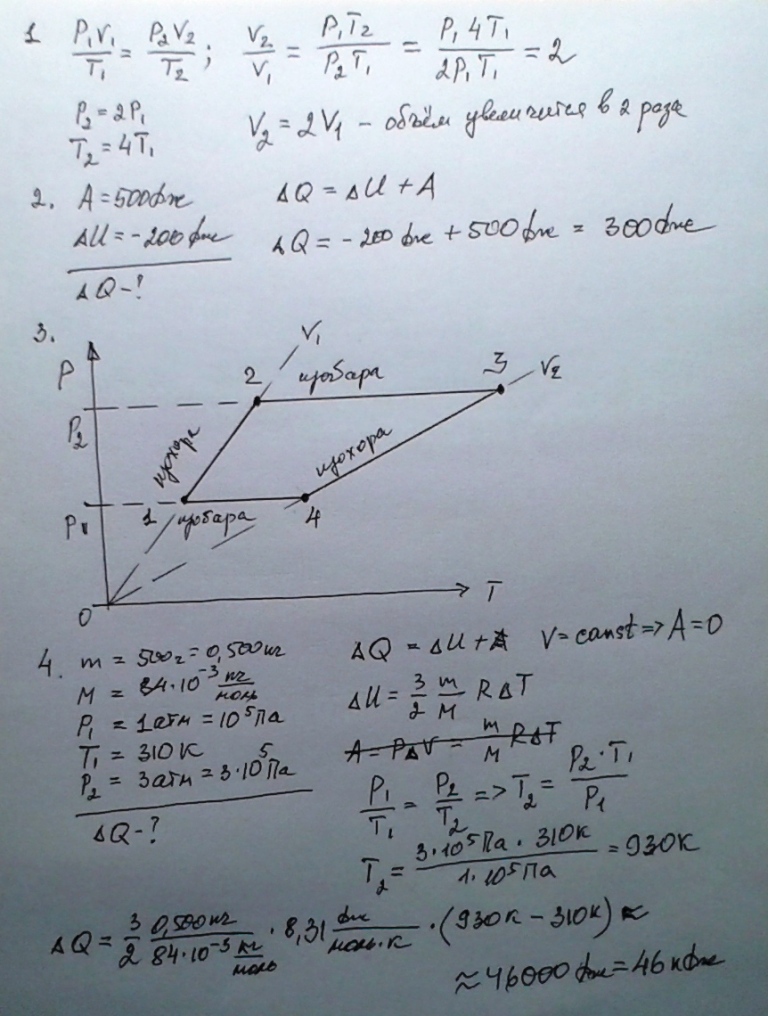 1 P₁V₁/T₁ = P₂V₂/T₂; V₂/V₁ = P₁T₂/P₂T₁ = P₁4T₁/2P₁T₁ = 2
P₂ = 2P₁
T₂ = 4T₁
V₂ = 2V₁ – объём увеличится в 2 раза
2. A = 500 дж
ΔU = -200 дж
ΔQ - ?
ΔQ = ΔU + A
ΔQ = -200 дж + 500 дж = 300 дж
3.
V₁
P
2 изобара 3 V₂
P₂
изохора
изохора
P₁ 1 изобара 4
0 T
4. m = 500г = 0,500 кг
M = 84·10⁻³ кг/моль
P₁ = 1 атм = 10⁵ Па
T₁ = 310 К
P₂ = 3 атм = 3·10⁵ Па
ΔQ - ?
ΔQ = ΔU + A V = const => A = 0
ΔU = 3/2 m/M RΔT
A = PΔV = m/M RΔT
P₁/T₁ = P₂/T₂ => T₂ = P₂·T₁/P₁
T₂ = 3·10⁵ Па · 310 К/1·10⁵ Па = 930 К
ΔQ = 3/2 0,500 кг/84·10⁻³ кг/моль · 8,31 дж/моль·К · (930 К – 310 К) ≈
≈ 46000 дж = 46 кдж